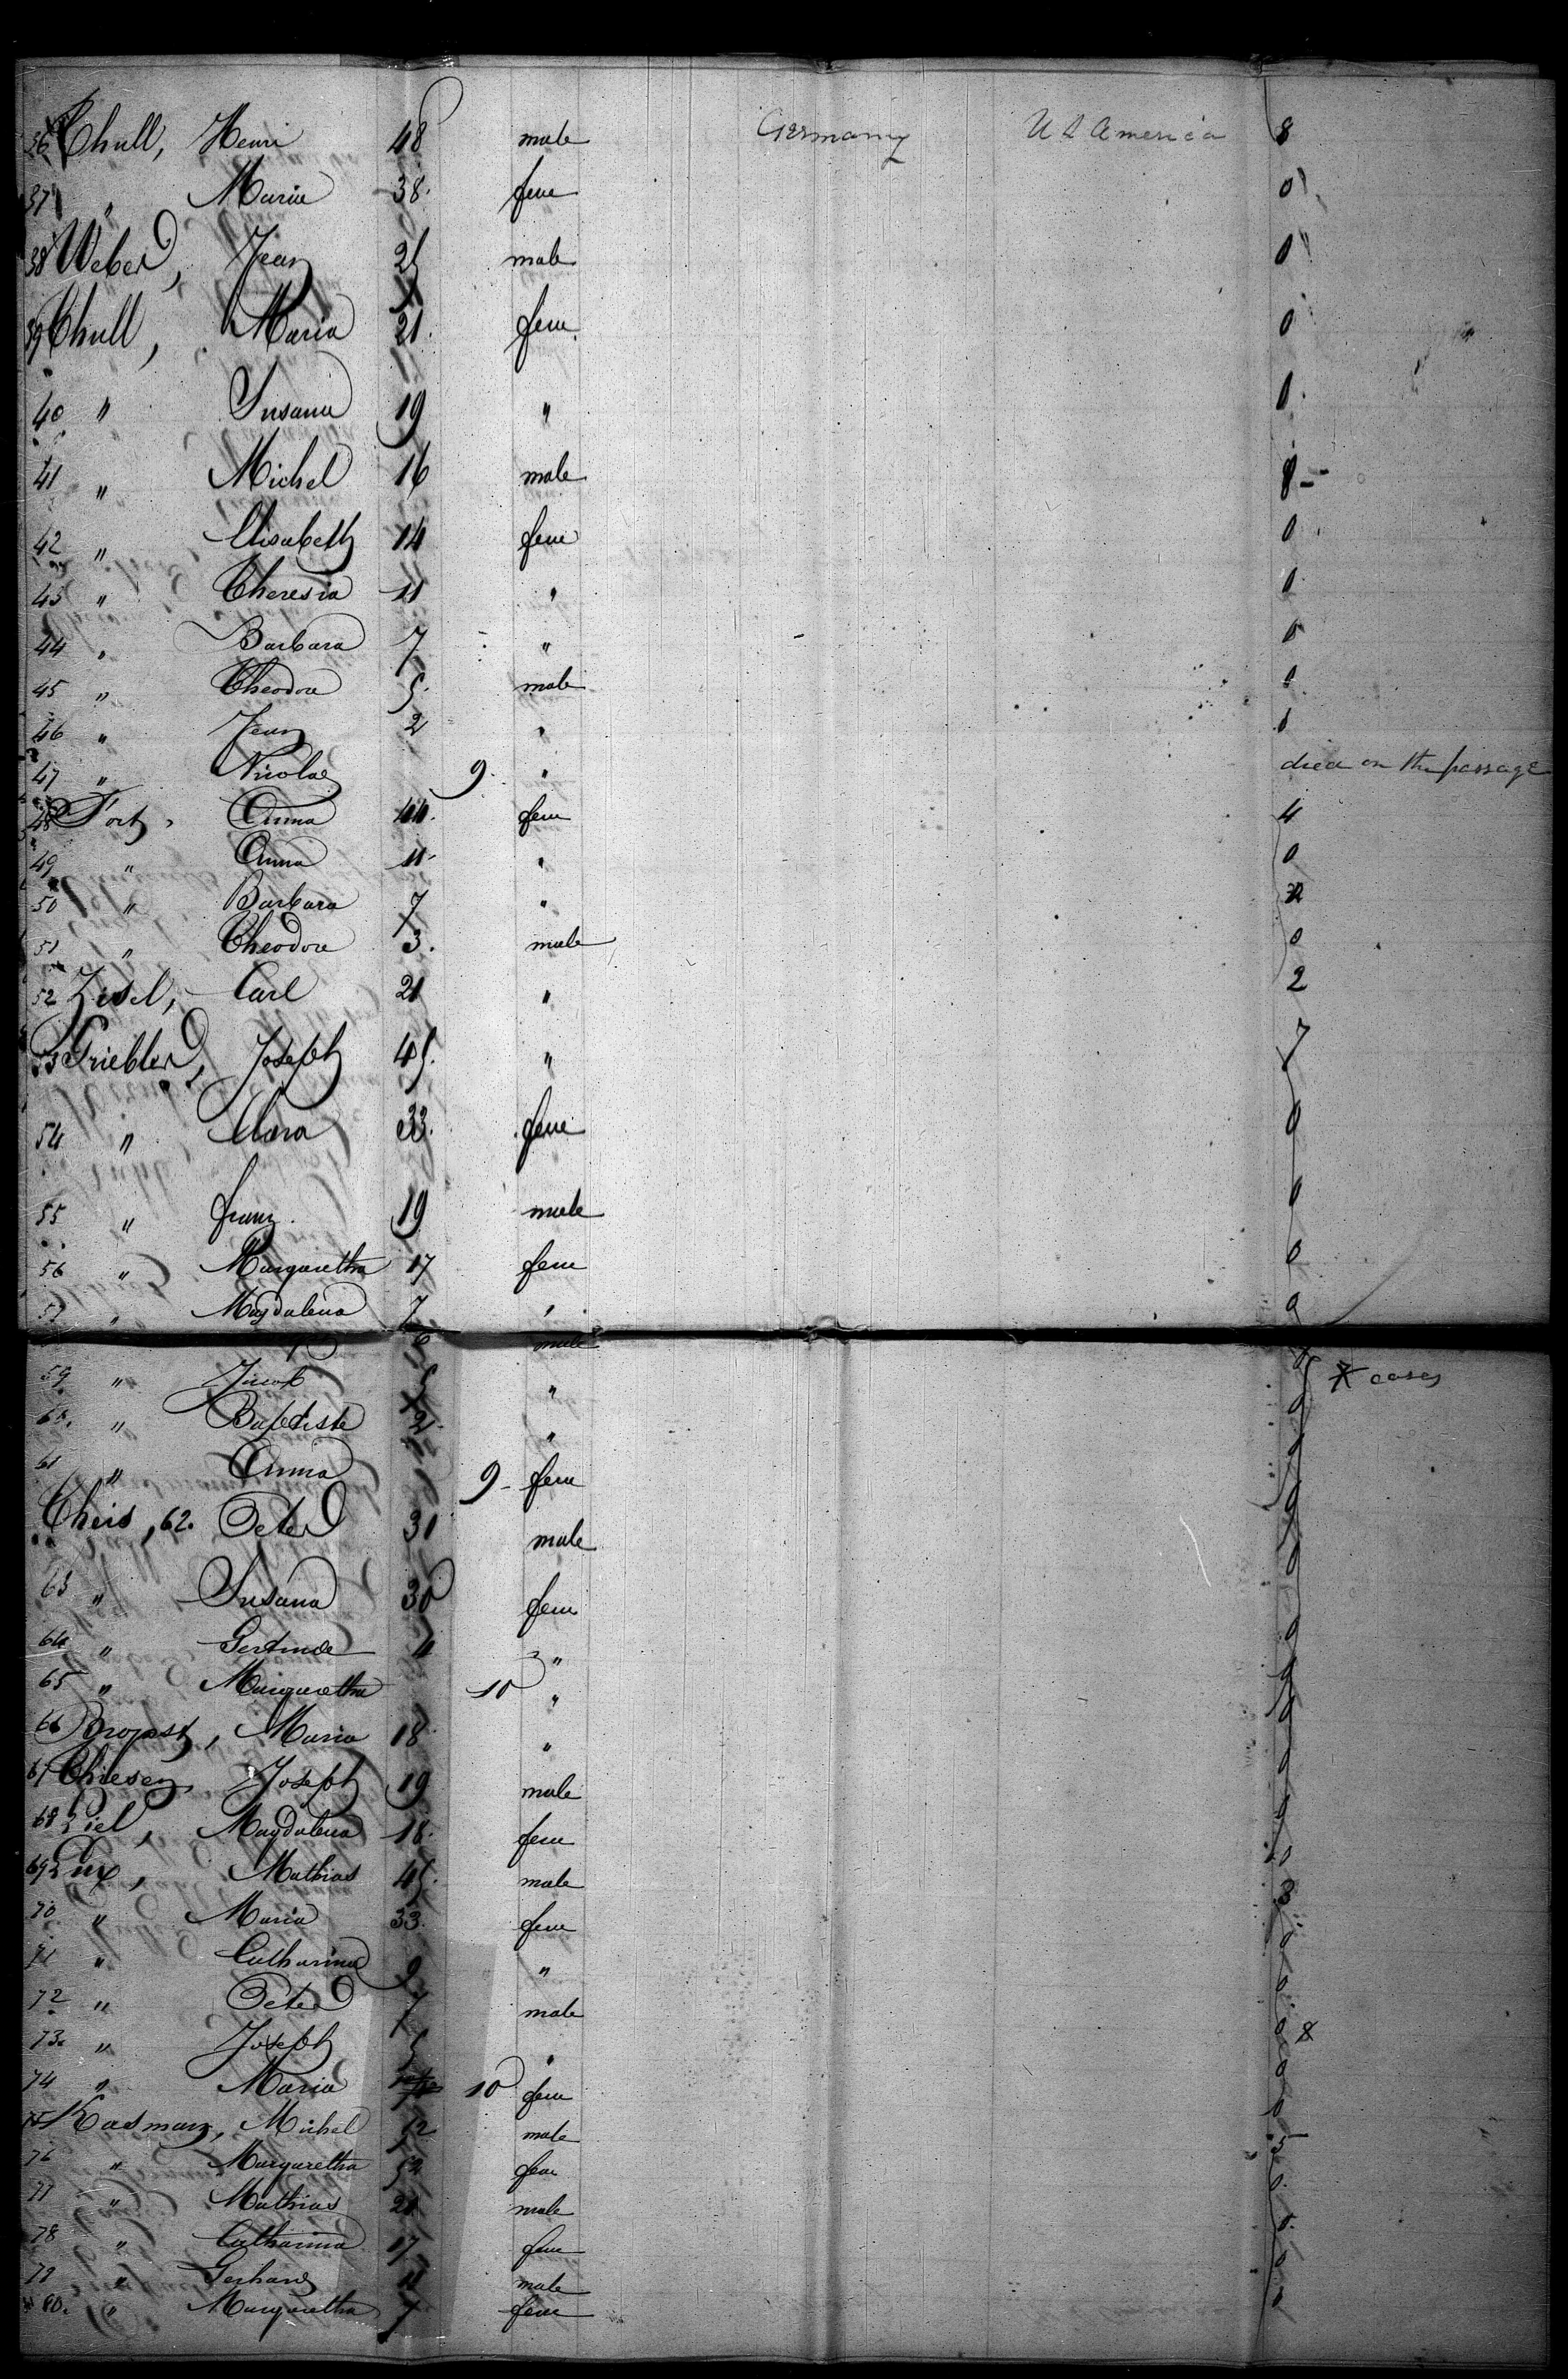 36 Thull, Henri 48 male Germany U S America 8
37 " Marie 38. fem 0
38 Weber, Jean 25 male 0
39 Thull, Maria 21. fem 0
40 " Susana 19 " 0
41 " Michel 16 male 8
42 " Elisabeth 14 fem 0
43 " Theresia 11 " 0
44 " Barbara 7 " 0
45 " Theodor 5. male 0
46 " Jean 2 " 0
47 " Nicolas 9. " died on the passage
48 Anna 44. fem 4
49 " Anna 11. " 0
50 " Barbara 7 "
51 " Theodore 3. male 0
52 Zisel, Carl 21 " 2
53 Griebler, Joseph 45. " 7
54 " Clara 33. fem 0
55 " franz. 19 male 0
56 " Margaretha 17 fem 0
57 " Magdalena 7 " 0
6 male
59 " Jacob 5 " 0 7 cases
60. " Baptiste 2. " 0
61 " Anna 9 - fem 0
Theis, 62. Peter 31 male 0
63 " Susana 30 fem 0
64 " Gertrude 4 " 0
65 " Margaretha 10 " 0
66 Propst, Maria 18 " 0
67 Thiesen, Joseph 19 male 0
68 Ziel, Magdalena 18. fem 0
69 Lux, Mathias 45. male 3
70 " Maria 33. fem 0
71 " Catharina 9 " 0
72 " Peter 7 male 0
73. " Joseph 5 " 0
74 " Maria 10 fem 0
75 Kasman, Michel 52 male 5
76 " Margaretha 52 fem 0.
77 " Mathias 21 male 0.
78 " Catharina 17 fem 0
79 " Gerhard 11 male 0
80. " Margaretha 7 fem